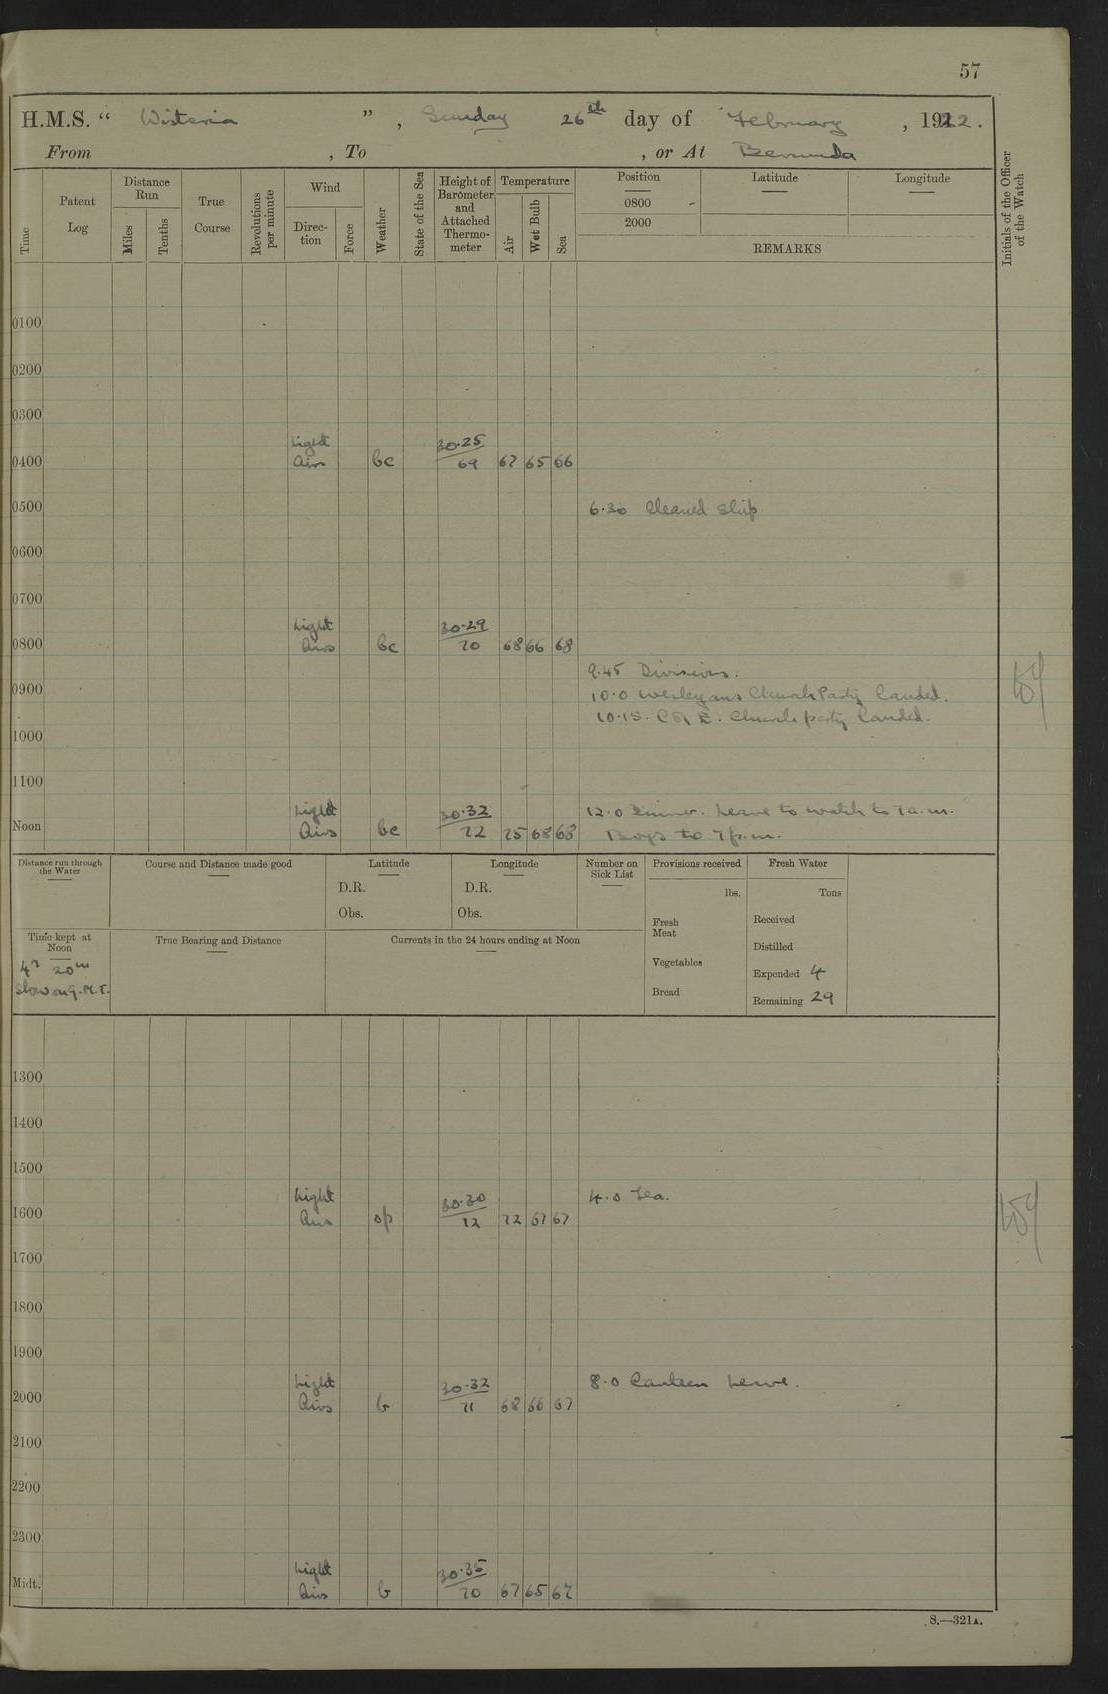 57
H.M.S. “ Wisteria ” , Sunday 26th day of February , 1922.
From , To , or At Bermuda
Time
Patent Log
Distance Run
Miles
Tenths
True Course
Revolutions per minute
Wind
Direc-tion
Force
Weather
State of the Sea
Height of Barometer and Attached Thermo-meter
Temperature
Air
Wet Bulb
Sea
Position
0800
2000
Latitude
Longitude
REMARKS
Initials of the Officer of the Watch
0100
0200
0300
Light 30.25
0400 Airs bc 69 67 65 66
0500 6.30 Cleaned Ship
0600
0700
Light 30.29
0800 Airs bc 70 68 66 68
9.45 Divisions.
0900 10.0 Wesleyans Church Party landed.
10.15. C of E. Church party landed.
1000
1100
Light 30.32 12.0 Dinner. Leave to watch to 7 a.m.
Noon Airs bc 72 75 68 68 Boys to 7 p.m.
Distance run through the Water
Course and Distance made good
Latitude
D.R.
Obs.
Longitude
D.R.
Obs.
Number on Sick List
Provisions received
lbs.
Fresh Meat
Vegetables
Bread
Fresh Water
Tons
Received
Distilled
Expended 4
Remaining 29
Time kept at Noon
4h 20m
Slow on G.M.T.
True Bearing and Distance
Currents in the 24 hours ending at Noon
1300
1400
1500
Light 30.30 4.0 Tea.
1600 Airs op 72 72 67 67
1700
1800
1900
Light 30.32 8.0 Canteen Leave.
2000 Airs b 71 68 66 67
2100
2200
2300
Light 30.35
Midt. Airs b 70 67 65 67
S.—321A.